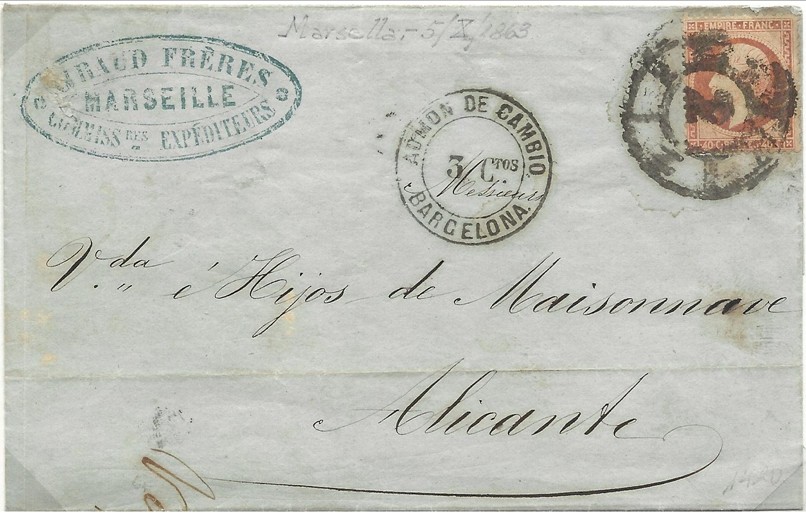 Marsella,- 5/X/1863
GIRAUD FRÈRES
MARSEILLE
COMMISS.RES EXPÉDITEURS
EMPIRE FRANC.
40 C
ADMON DE CAMBIO.
3 CTOS
BARCELONA.
Messieurs
V.da é Hijos de Maisonnave
Alicante
1420